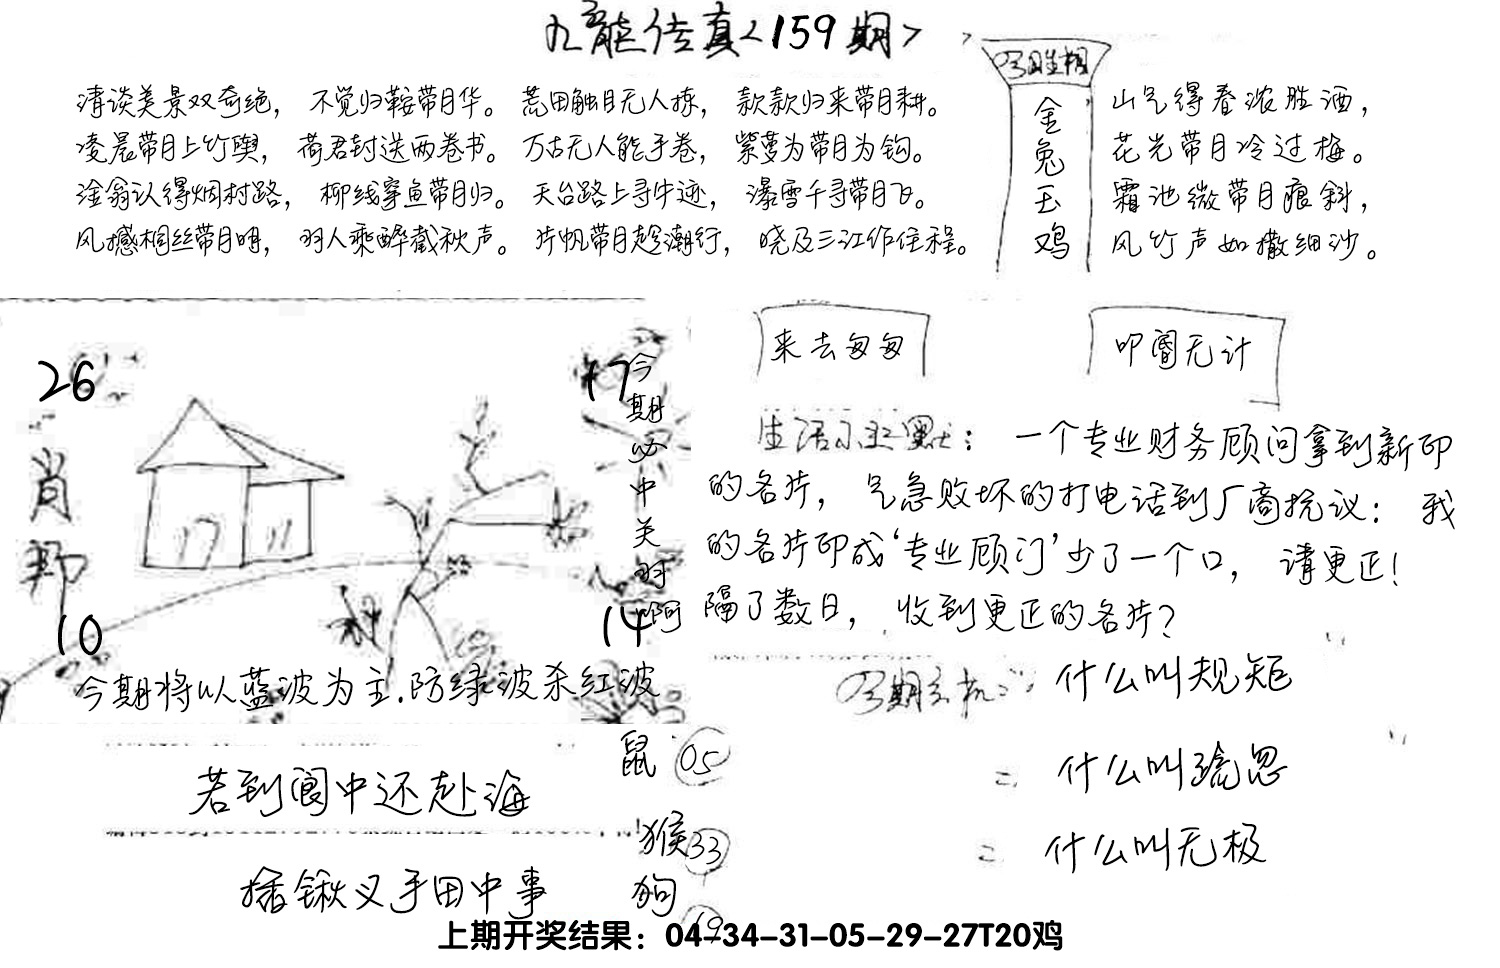 九龙传真<159期>
清谈美景双奇绝，不觉归鞍带月华。荒田触目无人拣，款款归来带月耕。
凌晨带月上竹舆，荷君封送两卷书。万古无人能手卷，紫萝为带月为钩。
淦翁认得烟村路，柳线穿鱼带月归。天台路上寻牛迹，瀑雪千寻带月飞。
风撼相丝带月明，羽人乘醉截秋声。片帆带月趁潮行，晓及三江作住程。
今日生相
金兔玉鸡
山气得春浓胜酒，
花光带月冷过梅。
霜池微带月痕斜，
风竹声如撒细沙。
来去匆匆
叩阍无计
26
17
肖
10
14
今期必中关羽啊
今期将以蓝波为主.防绿波杀红波
生活小幽默：一个专业财务顾问拿到新印
的名片，气急败坏的打电话到厂商抗议：我
的名片印成‘专业顾门’少了一个口，请更正！
隔了数日，收到更正的名片？
今期玄机：什么叫规矩
=什么叫疏忽
=什么叫无极
若到阆中还赴海
插锹叉手田中事
鼠 05
猴 33
狗 19
上期开奖结果：04-34-31-05-29-27T20鸡